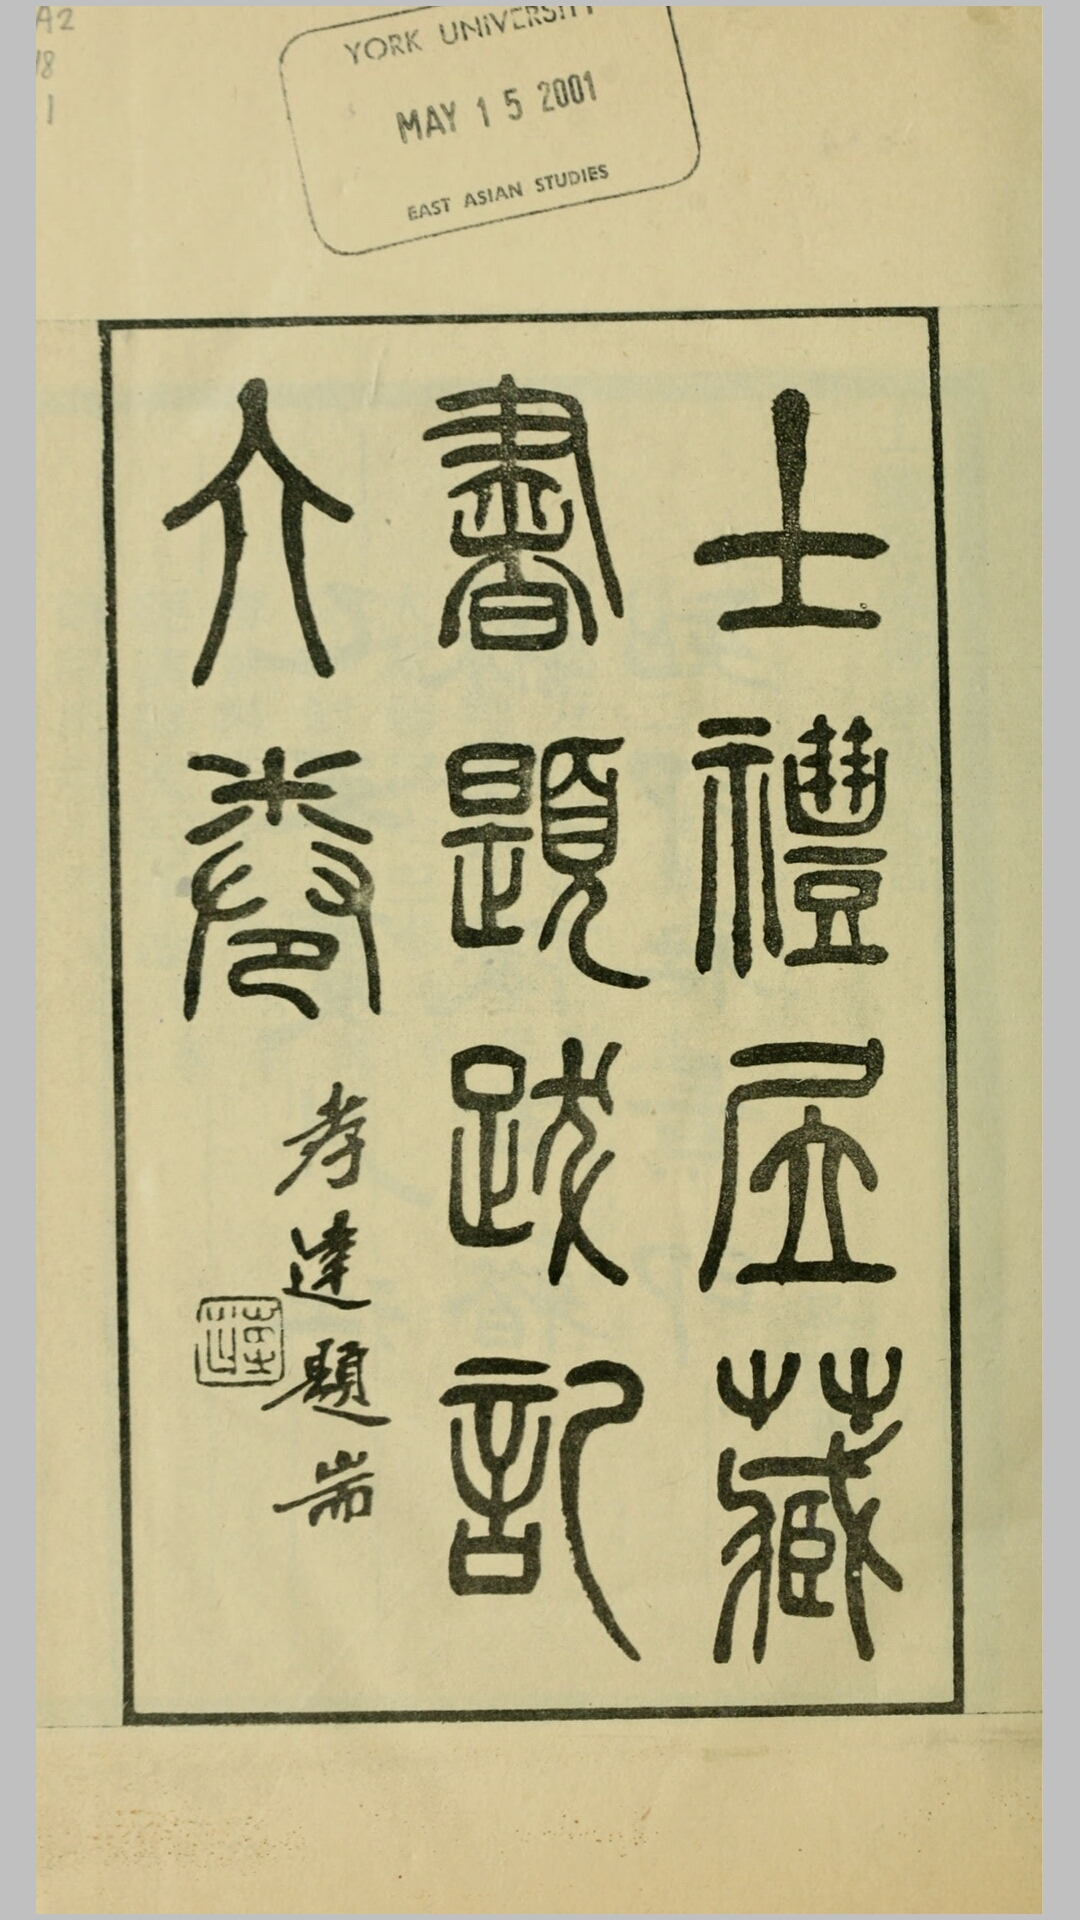 A2
18
1
YORK UNIVERSITY
MAY 15 2001
EAST ASIAN STUDIES
士禮居藏
書題跋記
六卷
孝達題耑